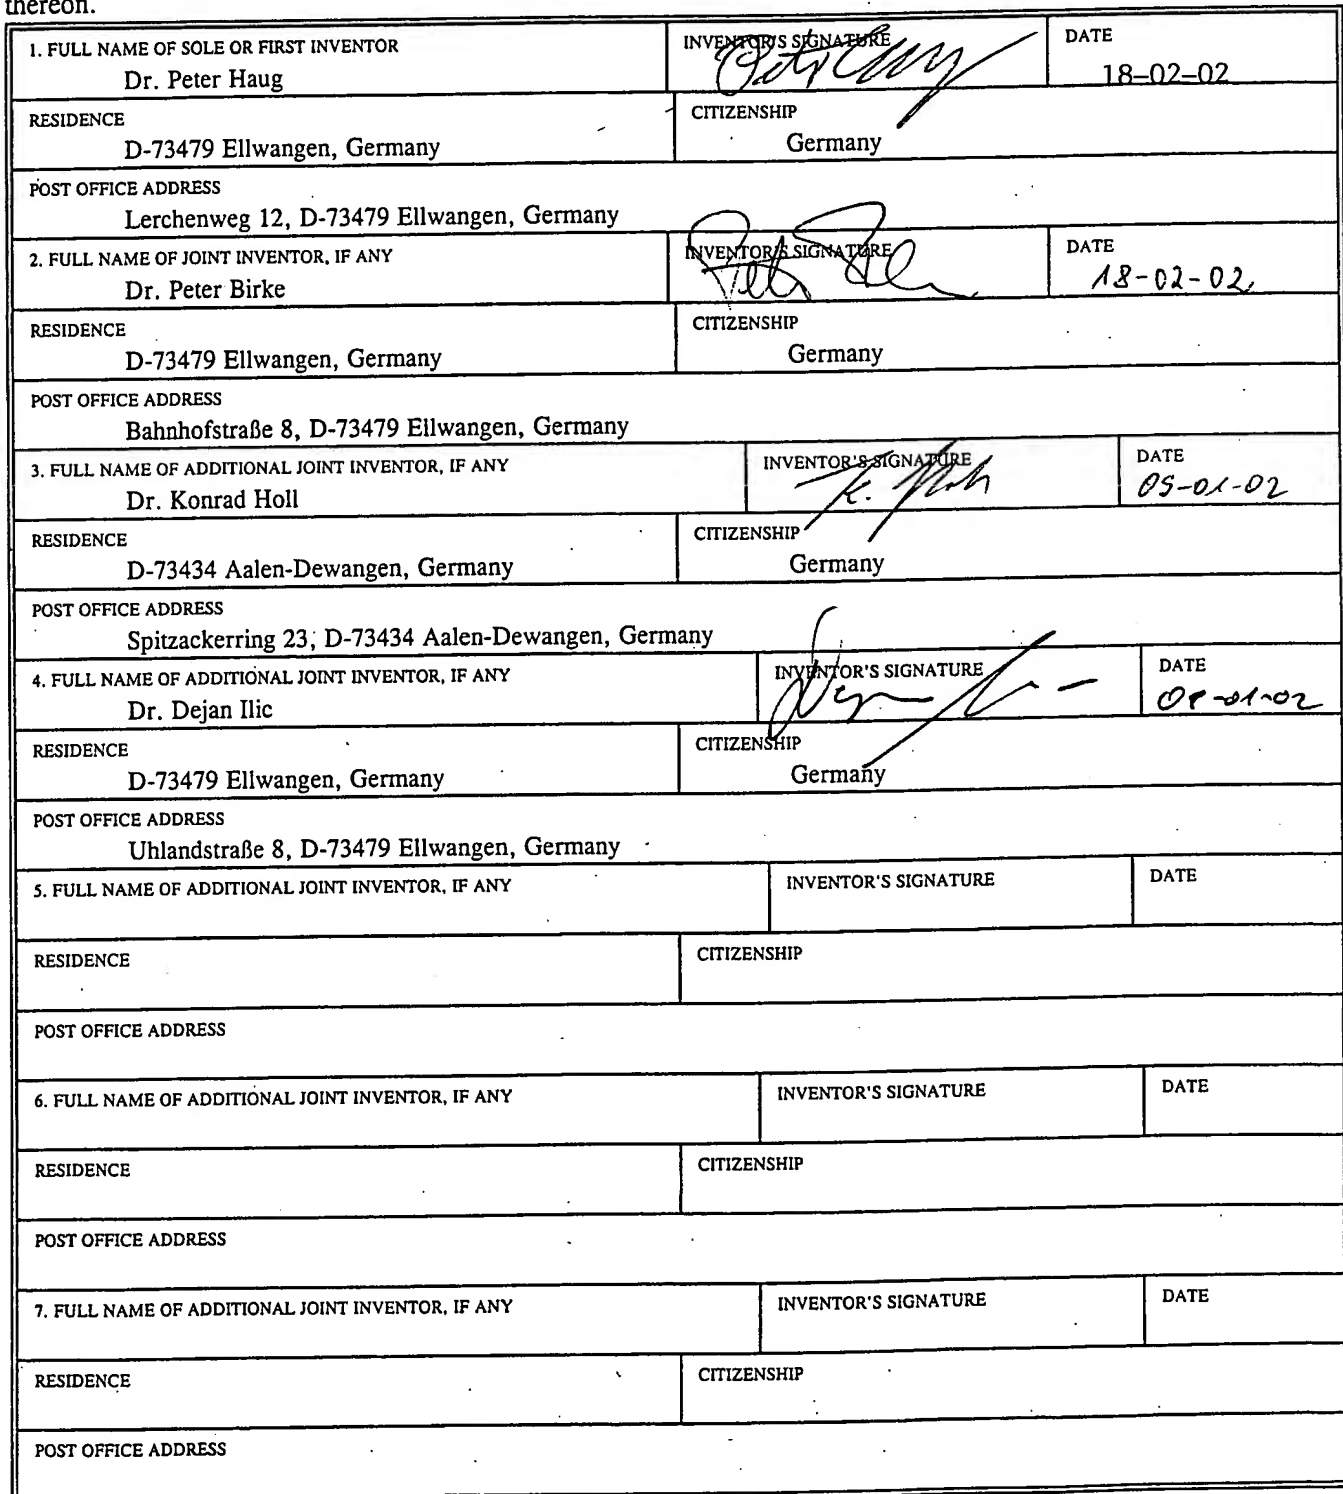 thereon.
1. FULL NAME OF SOLE OR FIRST INVENTOR INVENTOR'S SIGNATURE DATE
Dr. Peter Haug 18-02-02
RESIDENCE CITIZENSHIP
D-73479 Ellwangen, Germany Germany
POST OFFICE ADDRESS
Lerchenweg 12, D-73479 Ellwangen, Germany
2. FULL NAME OF JOINT INVENTOR, IF ANY INVENTOR'S SIGNATURE DATE
Dr. Peter Birke 18-02-02
RESIDENCE CITIZENSHIP
D-73479 Ellwangen, Germany Germany
POST OFFICE ADDRESS
Bahnhofstraße 8, D-73479 Ellwangen, Germany
3. FULL NAME OF ADDITIONAL JOINT INVENTOR, IF ANY INVENTOR'S SIGNATURE DATE
Dr. Konrad Holl
RESIDENCE CITIZENSHIP
D-73434 Aalen-Dewangen, Germany Germany
POST OFFICE ADDRESS
Spitzackerring 23, D-73434 Aalen-Dewangen, Germany
4. FULL NAME OF ADDITIONAL JOINT INVENTOR, IF ANY INVENTOR'S SIGNATURE DATE
Dr. Dejan Ilic
RESIDENCE CITIZENSHIP
D-73479 Ellwangen, Germany Germany
POST OFFICE ADDRESS
Uhlandstraße 8, D-73479 Ellwangen, Germany
5. FULL NAME OF ADDITIONAL JOINT INVENTOR, IF ANY INVENTOR'S SIGNATURE DATE
RESIDENCE CITIZENSHIP
POST OFFICE ADDRESS
6. FULL NAME OF ADDITIONAL JOINT INVENTOR, IF ANY INVENTOR'S SIGNATURE DATE
RESIDENCE CITIZENSHIP
POST OFFICE ADDRESS
7. FULL NAME OF ADDITIONAL JOINT INVENTOR, IF ANY INVENTOR'S SIGNATURE DATE
RESIDENCE CITIZENSHIP
POST OFFICE ADDRESS